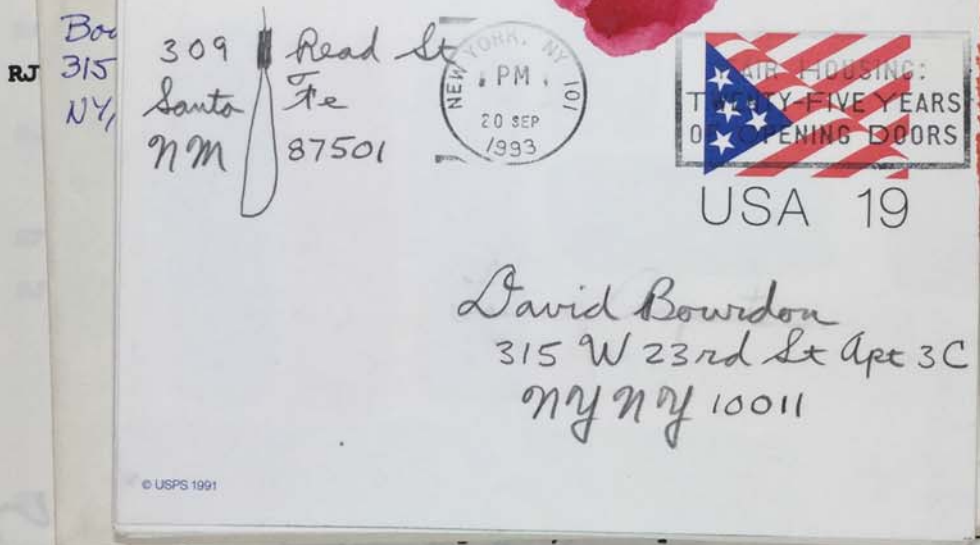 RJ
Bou
315
NY,
309 Read St
Santa Fe
NM 87501
NEW YORK, NY 101
PM
20 SEP
1993
AIR HOUSING:
TWENTY-FIVE YEARS
OF OPENING DOORS
USA 19
David Bourdon
315 W 23rd St Apt 3C
NY NY 10011
© USPS 1991